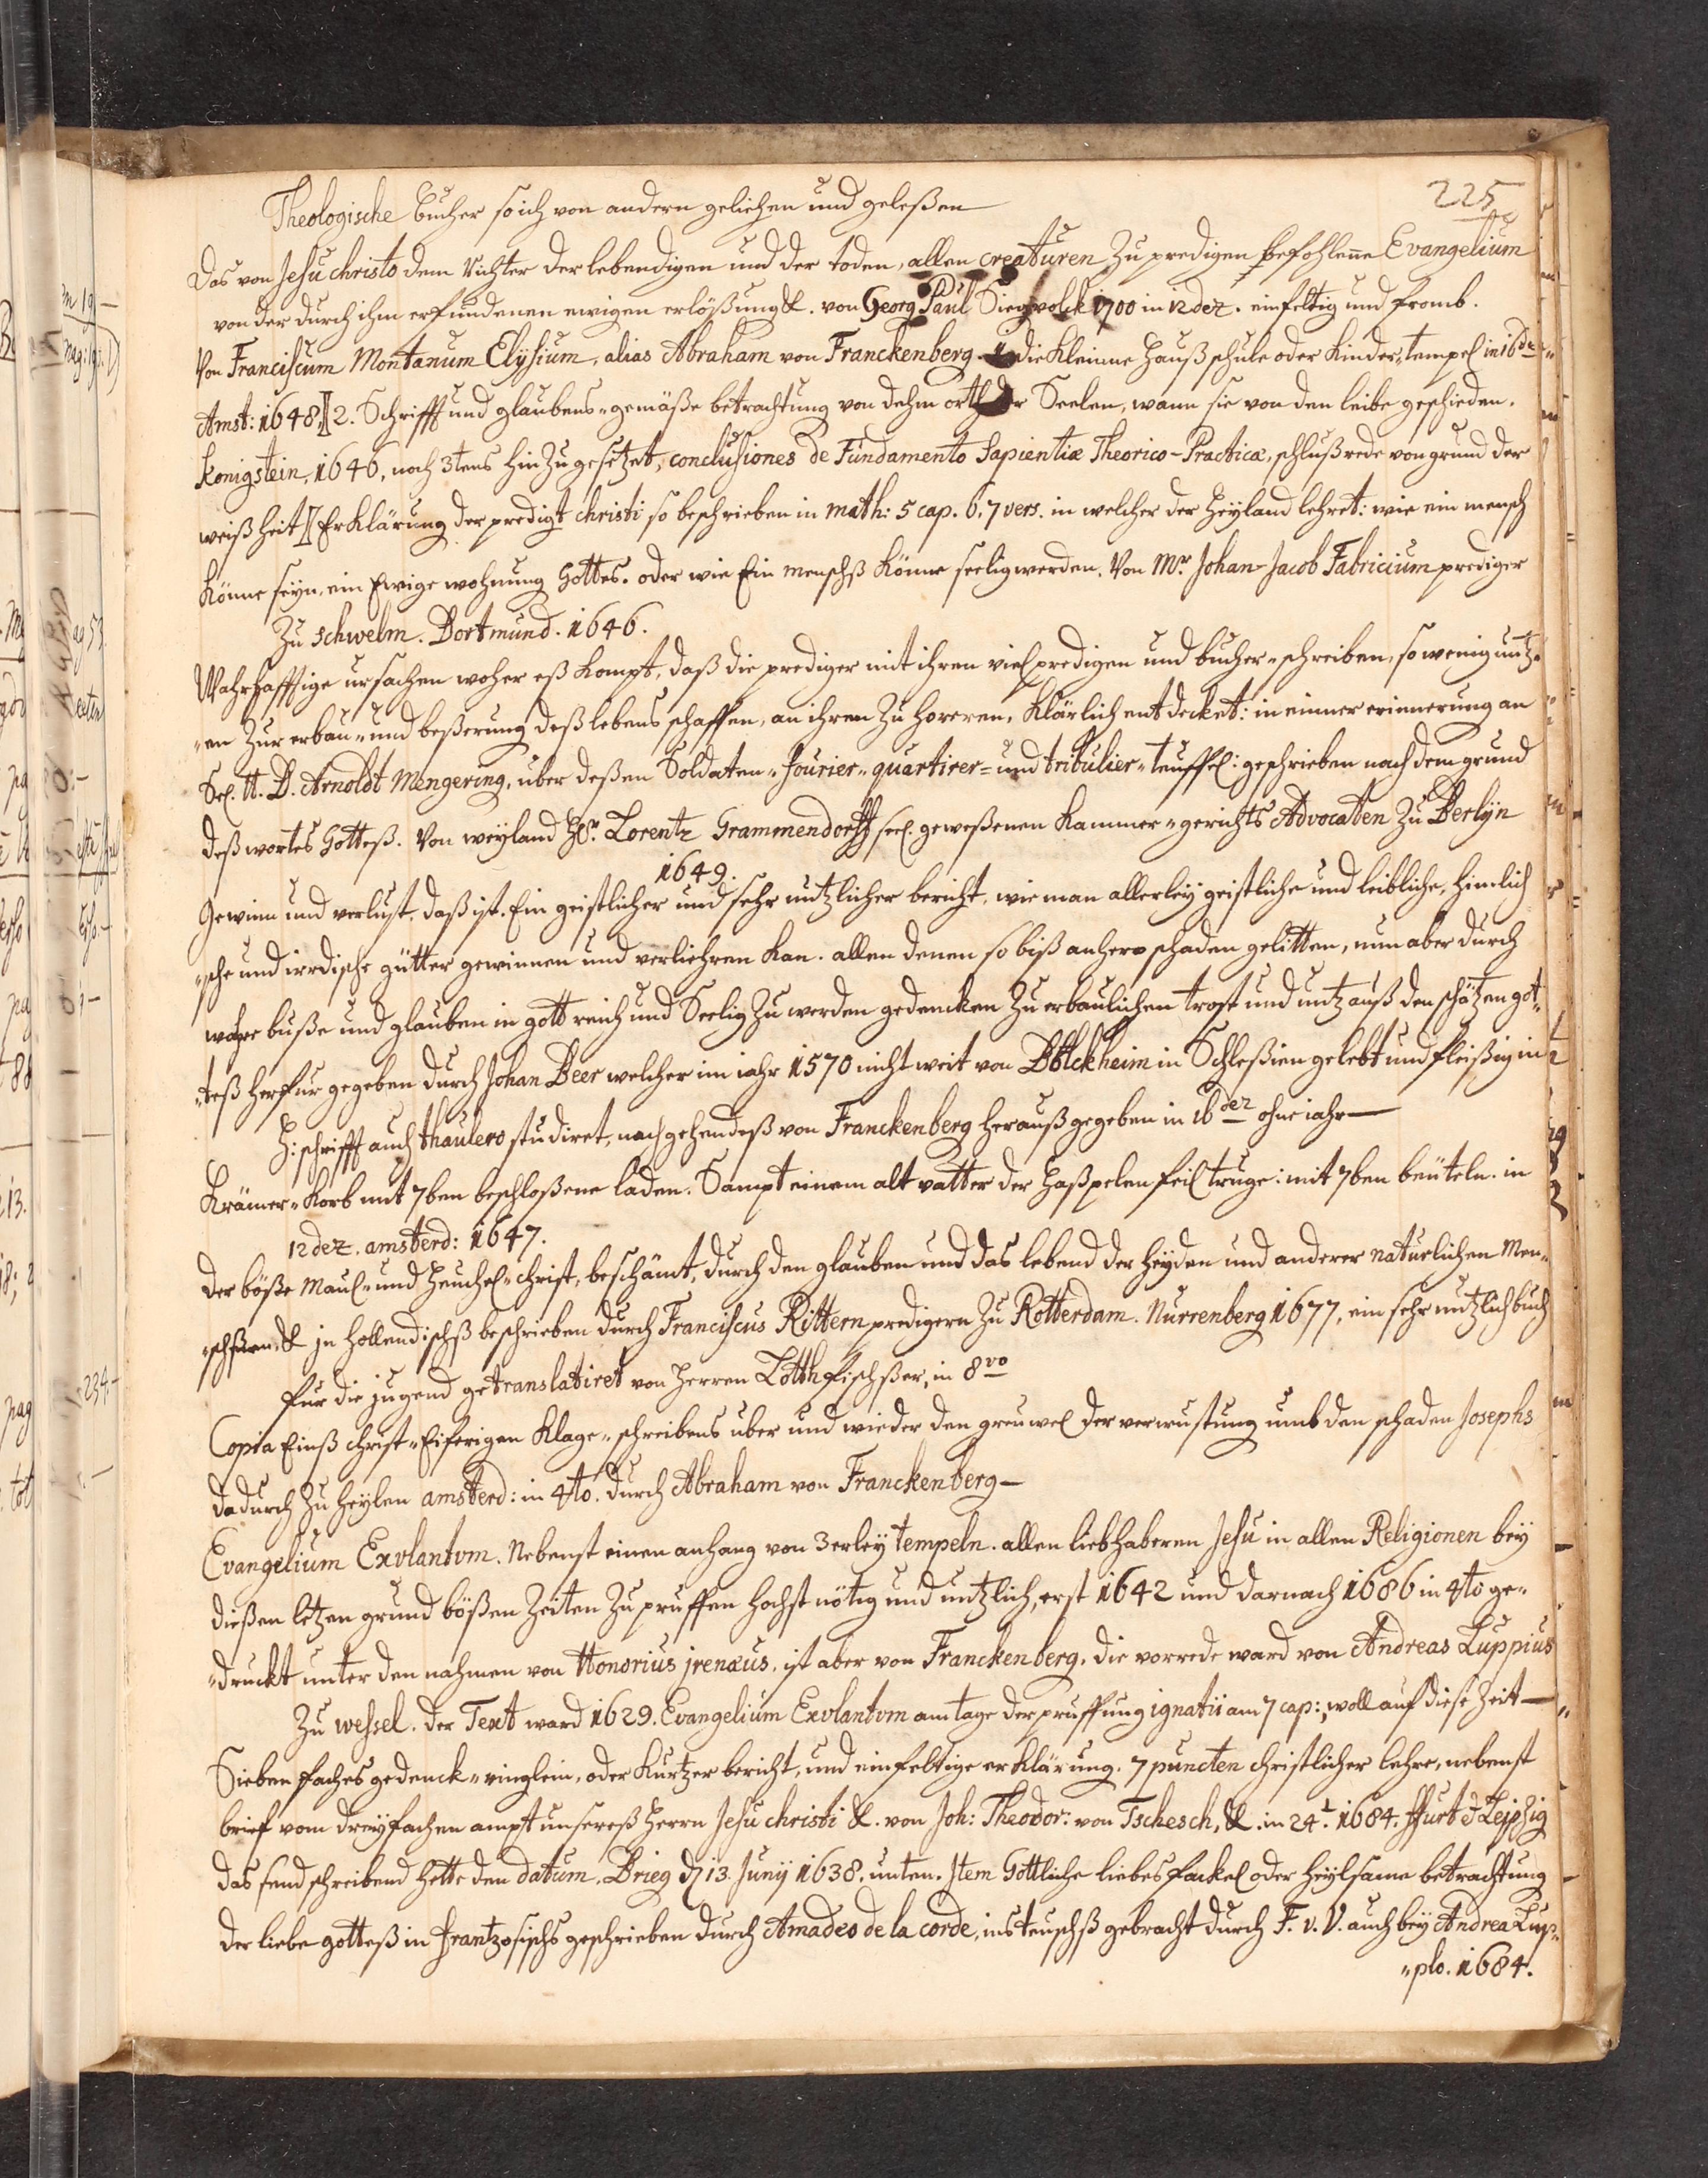 225
Theologische bucher so ich von andern geliehen und geleßen
Das von Jesu christo dem Richter der lebendigen und der toden, allen creaturen zu predigen befohlene Evangelium
von der durch ihm erfundenen ewigen erlößung &. von Georg Paul Siegvolck 1700 in 12dez. einfeltig und fromb.
Von Franciscum Montanum Elysium, alias Abraham von Franckenberg. 1 die Kleinne Hauß schule oder Kinder-tempel in 16dez
Amst: 1648. 2. Schrifft und glaubens-gemäße betrachtung von dehm orth der Seelen, wann sie von den leibe geschieden.
konigstein, 1646, noch 3tens hinzu gesetzet, conclusiones de Fundamento Sapientiæ Theorico-Practicæ, schlußrede von grund der
weißheit Erklärung der predigt christi so beschrieben in math: 5 cap. 6, 7 vers. in welcher der Heyland lehret: wie ein mensch
könne seyn, ein Ewige wohnung Gottes. oder wie Ein menschß könne seelig werden. Von Mr. Johan Jacob Fabricium prediger
zu schwelm. Dortmund. 1646.
Wahrhafftige ursachen woher eß kompt, daß die prediger mit ihren viel predigen und bucher-schreiben, so wenig nutz-
-en zur erbau- und beßerung deß lebens schaffen, an ihren zu horeren, klärlich entdecket: in einner erinnerung an
Sel. H. D. Arnoldt Mengering, uber deßen Soldaten-fourier-quartirer- und tribulier-teuffel: geschrieben nach dem grund
deß wortes Gotteß. Von weyland Hr. Lorentz Grammendorff seel. geweßenen Kammer-gerichts Advocaten zu Berlyn
1649.
Gewinn und verlust, daß ist. Ein geistlicher und sehr nutzlicher bericht, wie man allerley geistliche und leibliche, himlich
-sche und irrdische gütter gewinnen und verliehren kan. allen denen so biß anhero schaden gelitten, nun aber durch
wahre buße und glauben in gott reich und Seelig zu werden gedencken zu erbaulichen trost und nutz auß den schätzen got-
-teß herfur gegeben durch Johan Beer welcher im iahr 1570 nicht weit von Bolckheim in Schleßien gelebt und fleißig in
H: schrifft auch thaulero studiret, nachgehendeß von Franckenberg herauß gegeben in 16dez ohne iahr—
Krämer-korb mit 7ben beschloßene laden. Sampt einem alt vatter der Haßpelen feil truge: mit 7ben beüteln. in
12dez. amsterd: 1647.
Der böße Maul- und Heuchel-christ, beschämt, durch den glauben und das lebend der Heyden und anderer naturlichen Men-
-schßen, & jn Hollendischß beschrieben durch Franciscus Rittern predigern zu Rotterdam. Nurrenberg 1677, ein sehr nutzlich buch
fur die jugend getranslatiret von Herren Lotth fischßer, in 8vo
Copia Einß christ-Eiferigen klage-schreibens uber und wieder den greuwel der verwustung umb den schaden Josephs
dadurch zu heylen amsterd: in 4to. durch Abraham von Franckenberg—
Evangelium Exvlantvm. Nebenst einen anhang von 3erley tempeln. allen liebhaberen Jesu in allen Religionen bey
dießen letzen grund bößen zeiten zu pruffen hochst nötig und nutzlich, erst 1642 und darnach 1686 in 4to ge-
-druckt unter den nahmen von Honorius jrenæus, ist aber von Franckenberg. die vorrede ward von Andreas Luppius
zu wessel. der Text ward 1629. Evangelium Exvlantvm am tage der pruffung ignatii am 7 cap:, woll auf diese zeit—
Sieben faches gedenck-ringlein, oder kurtzer bericht, und einfeltige erklärung. 7 puncten christlicher lehre, nebenst
brief vom dreyfachen ampt unsereß Herrn Jesu christi &. von Joh: Theodor: von Tschesch, &. in 24t. 1684. ffurt & Leipzig
das send schreibend hette den datum. Brieg d 13. Junij 1638. unten. Jtem Gottliche liebes fackel oder heylsame betrachtung
der liebe gotteß in frantzosischs geschrieben durch Amadeo de la corde, ins teuschß gebracht durch F. v. V. auch bey Andrea Lup-
-pio. 1684.